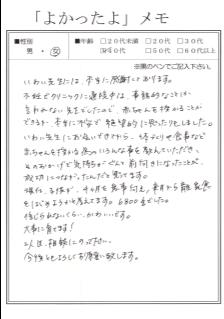 「よかったよ」メモ
■性別
男・女
■年齢 □20代未満 □20代 □30代
☑40代 □50代 □60代以上
※黒のペンでご記入下さい。
いわい先生には、本当に感謝しております。
不妊でクリニックに通院中は、事務的なことしか
言われない先生でしたので、赤ちゃんを授かることが
できるか、本当に不安で絶望的に思ったりもしました。
いわい先生にお会いできてから、漢方や食事など
赤ちゃんを授かる為のいろんな事を教えていただき、
そのおかげで気持ちがどんどん前向きになったことが、
成功につながったんだと思ってます。
現在、子供が、4ヶ月を無事むかえ、来月から離乳食
をはじめようかと考えてます。6800gでした。
信じられないくらい、かわいいです。
大事に育てます!
2人目、相談にのって下さい。
今後ともよろしくお願い致します。